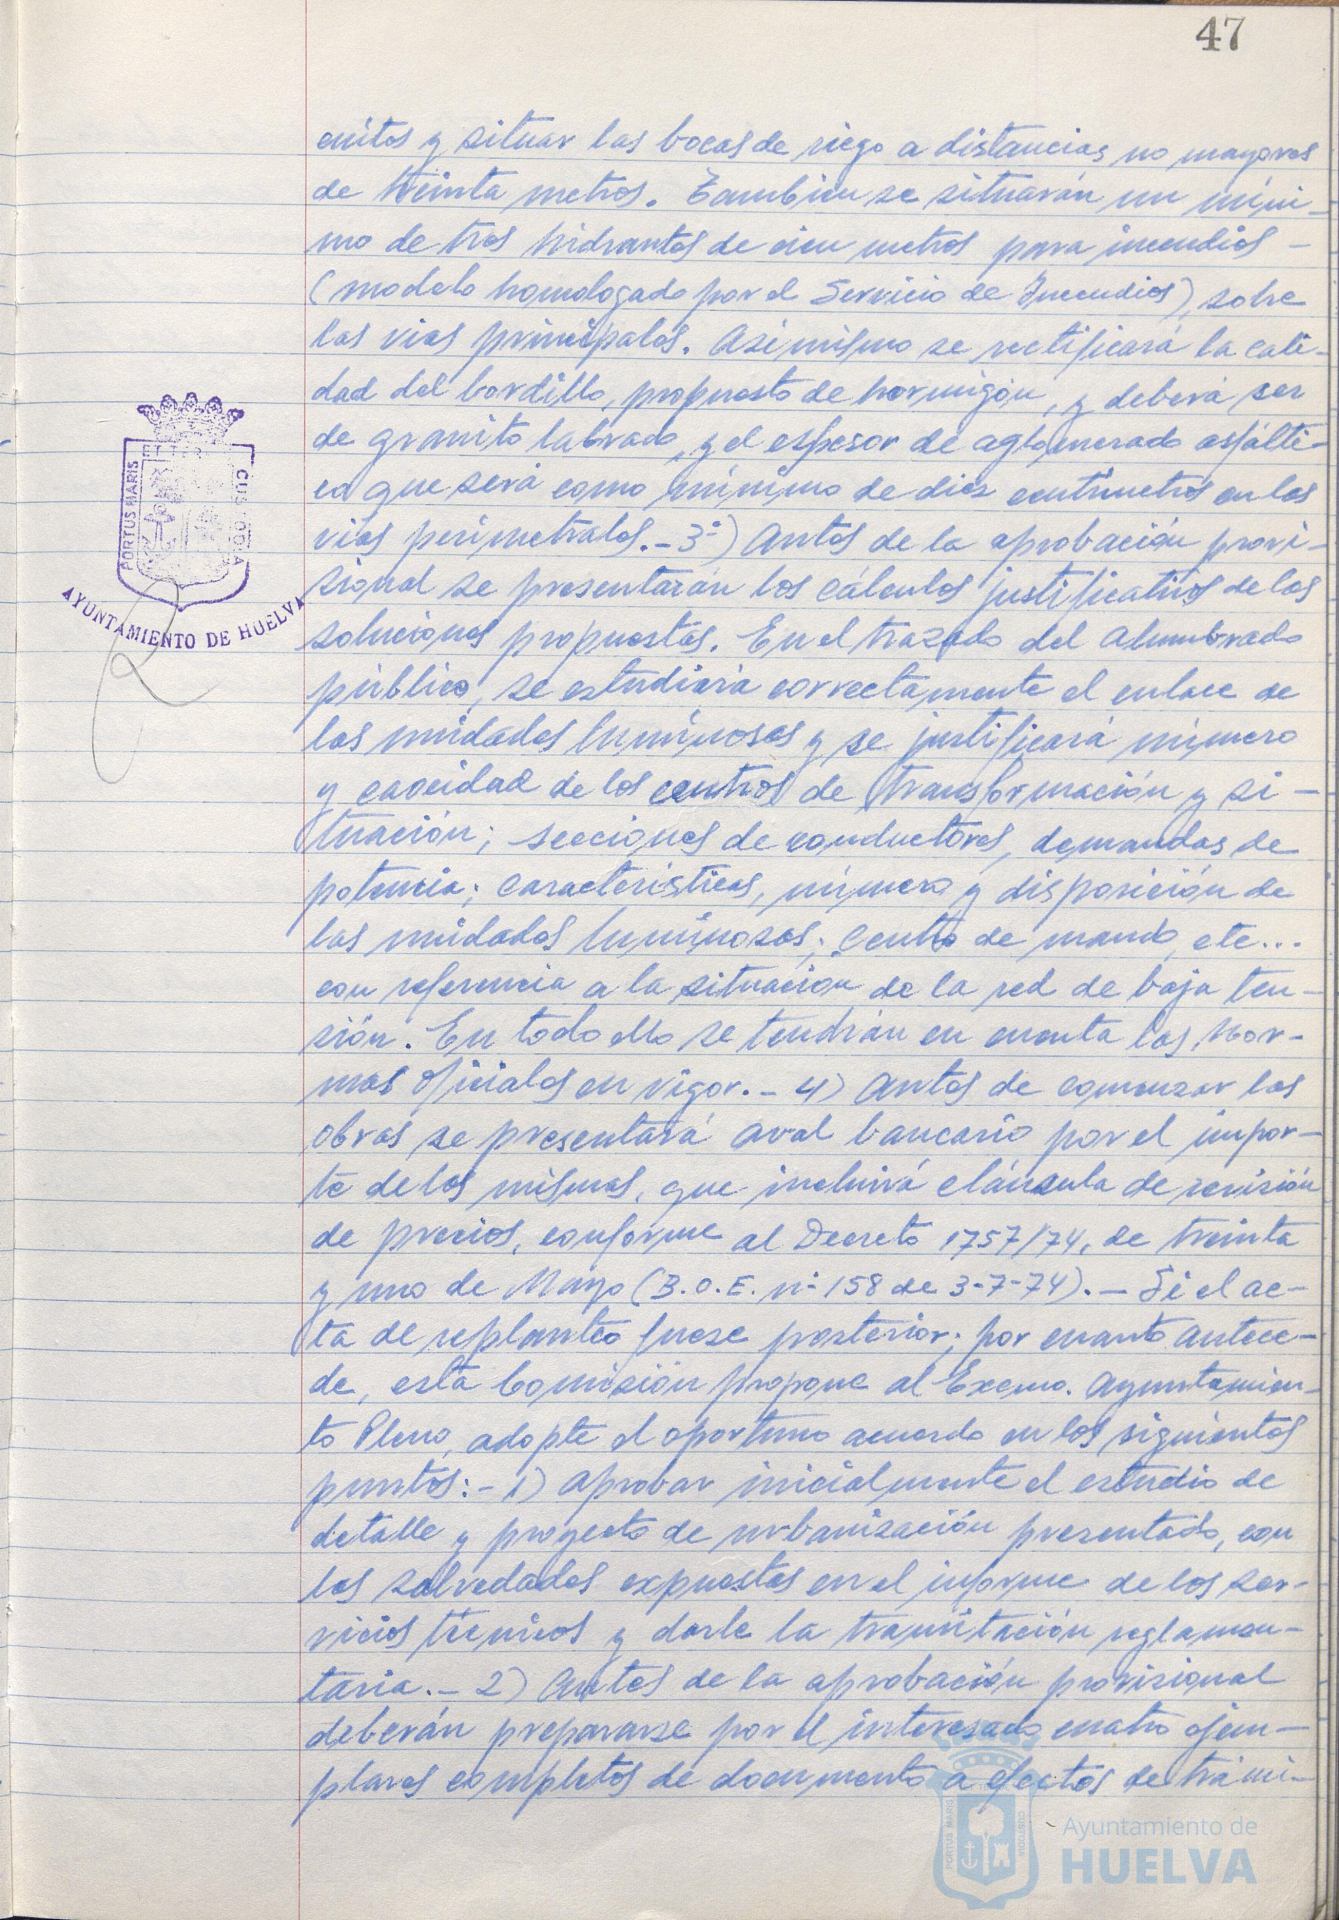 47
cuitos y situar las bocas de riego a distancias no mayores
de treinta metros. Tambien se situarán un míni-
mo de tres hidrantes de cien metros para incendios -
(modelo homologado por el Servicio de Incendios), sobre
las vias principales. Asimismo se rectificará la cali-
dad del bordillo, propuesto de hormigón, y deberá ser
de granito labrado, y el espesor de aglomerado asfálti-
co que será como mínimo de diez centimetros en las
vias perimetrales.- 3º) Antes de la aprobación provi-
sional se presentarán los cálculos justificativos de las
soluciones propuestas. En el trazado del alumbrado
público, se estudiará correctamente el enlace de
las unidades luminosas y se justificará número
y capacidad de los centros de transformación y si-
tuación; secciones de conductores, demandas de
potencia; caracteristicas, número y disposición de
las unidades luminosas; centro de mando, etc...
con referencia a la situación de la red de baja ten-
sión. En todo ello se tendrán en cuenta las Nor-
mas Oficiales en vigor.- 4) Antes de comenzar las
obras se presentará aval bancario por el impor-
te de los mismas, que incluirá cláusula de revisión
de precios, conforme al Decreto 1757/74, de treinta
y uno de Mayo (B.O.E. nº 158 de 3-7-74).- Si el ac-
ta de replanteo fuese posterior; por cuanto antece-
de, esta Comisión propone al Excmo. Ayuntamien-
to Pleno, adopte el oportuno acuerdo en los siguientes
puntos:- 1) Aprobar inicialmente el estudio de
detalle y proyecto de urbanización presentado, con
las salvedades expuestas en el informe de los ser-
vicios técnicos y darle la tramitación reglamen-
taria.- 2) Antes de la aprobación provisional
deberán prepararse por el interesado cuatro ejem-
plares completos de documento a efectos de trámi-
PORTUS MARIS
CUSTODIA
AYUNTAMIENTO DE HUELVA
PORTUS MARIS
CUSTODIA
Ayuntamiento de
HUELVA